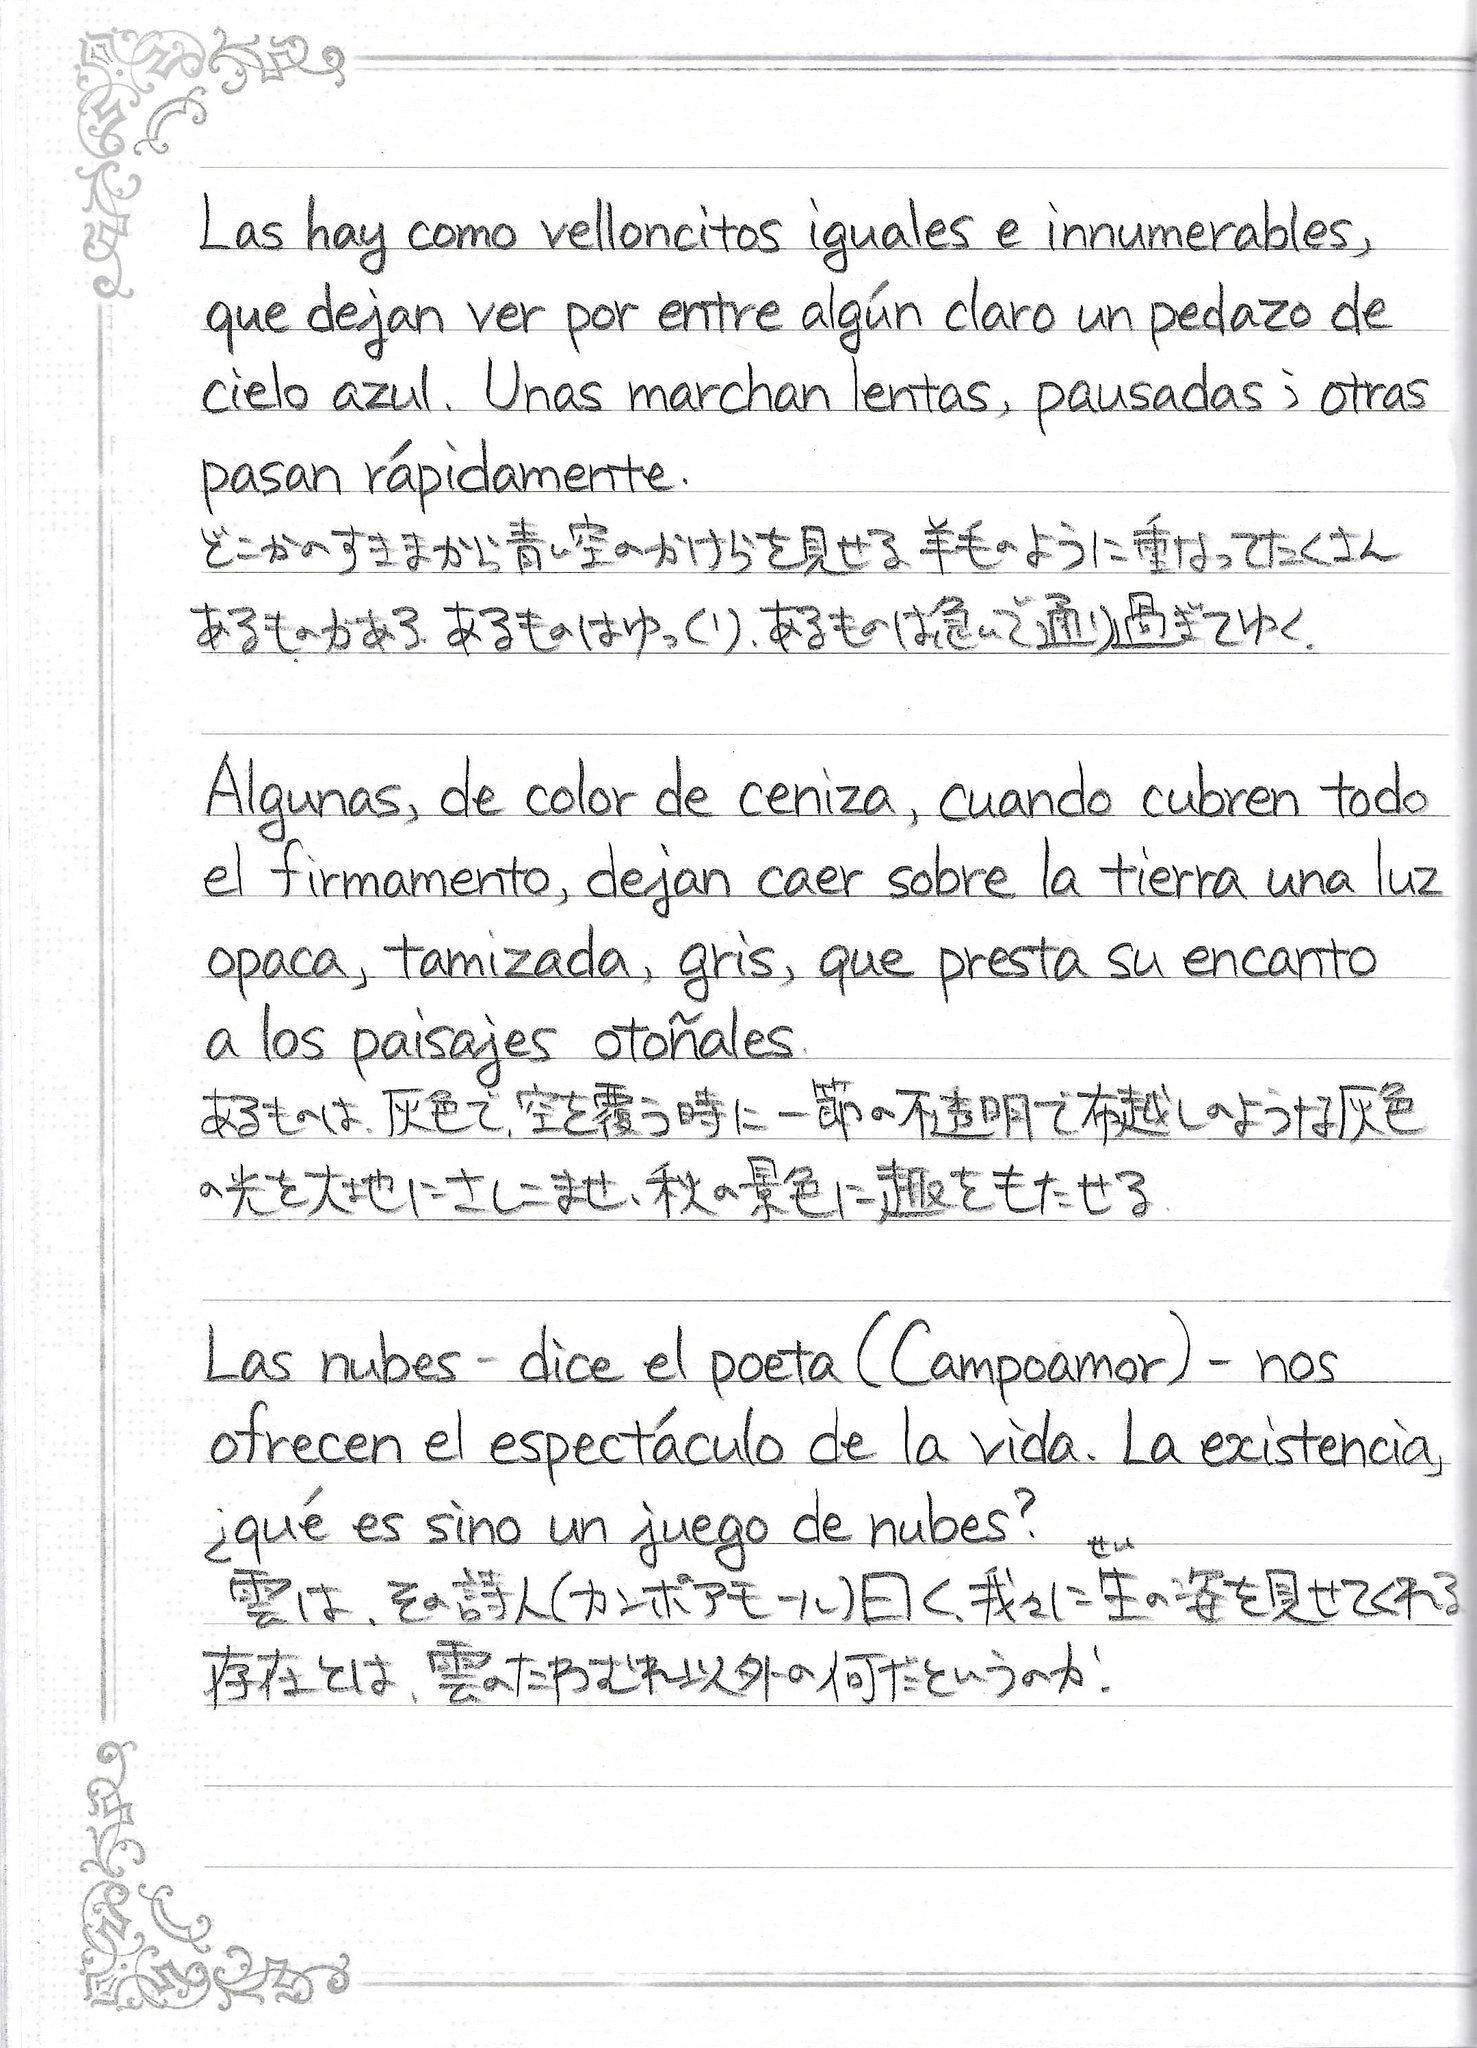 Las hay como velloncitos iguales e innumerables,
que dejan ver por entre algún claro un pedazo de
cielo azul. Unas marchan lentas, pausadas; otras
pasan rápidamente.
どこかのすきまから青い空のかけらを見せる羊毛のように重なってたくさん
あるものがある. あるものはゆっくり、あるものは急いで通り過ぎてゆく.
Algunas, de color de ceniza, cuando cubren todo
el firmamento, dejan caer sobre la tierra una luz
opaca, tamizada, gris, que presta su encanto
a los paisajes otoñales.
あるものは、灰色で、空を覆う時に一節の不透明で布越しのような灰色
の光を大地にさしこませ、秋の景色に趣をもたせる.
Las nubes - dice el poeta (Campoamor) - nos
ofrecen el espectáculo de la vida. La existencia,
¿qué es sino un juego de nubes?
せい
雲は、その詩人(カンポアモール)曰く、我々に生の姿を見せてくれる
存在とは、雲のたわむれ以外の何だというのか!